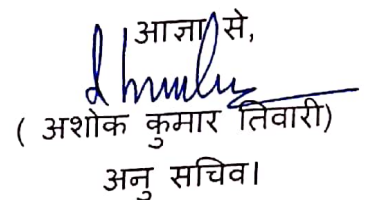 आज्ञा से,
( अशोक कुमार तिवारी)
अनु सचिव।